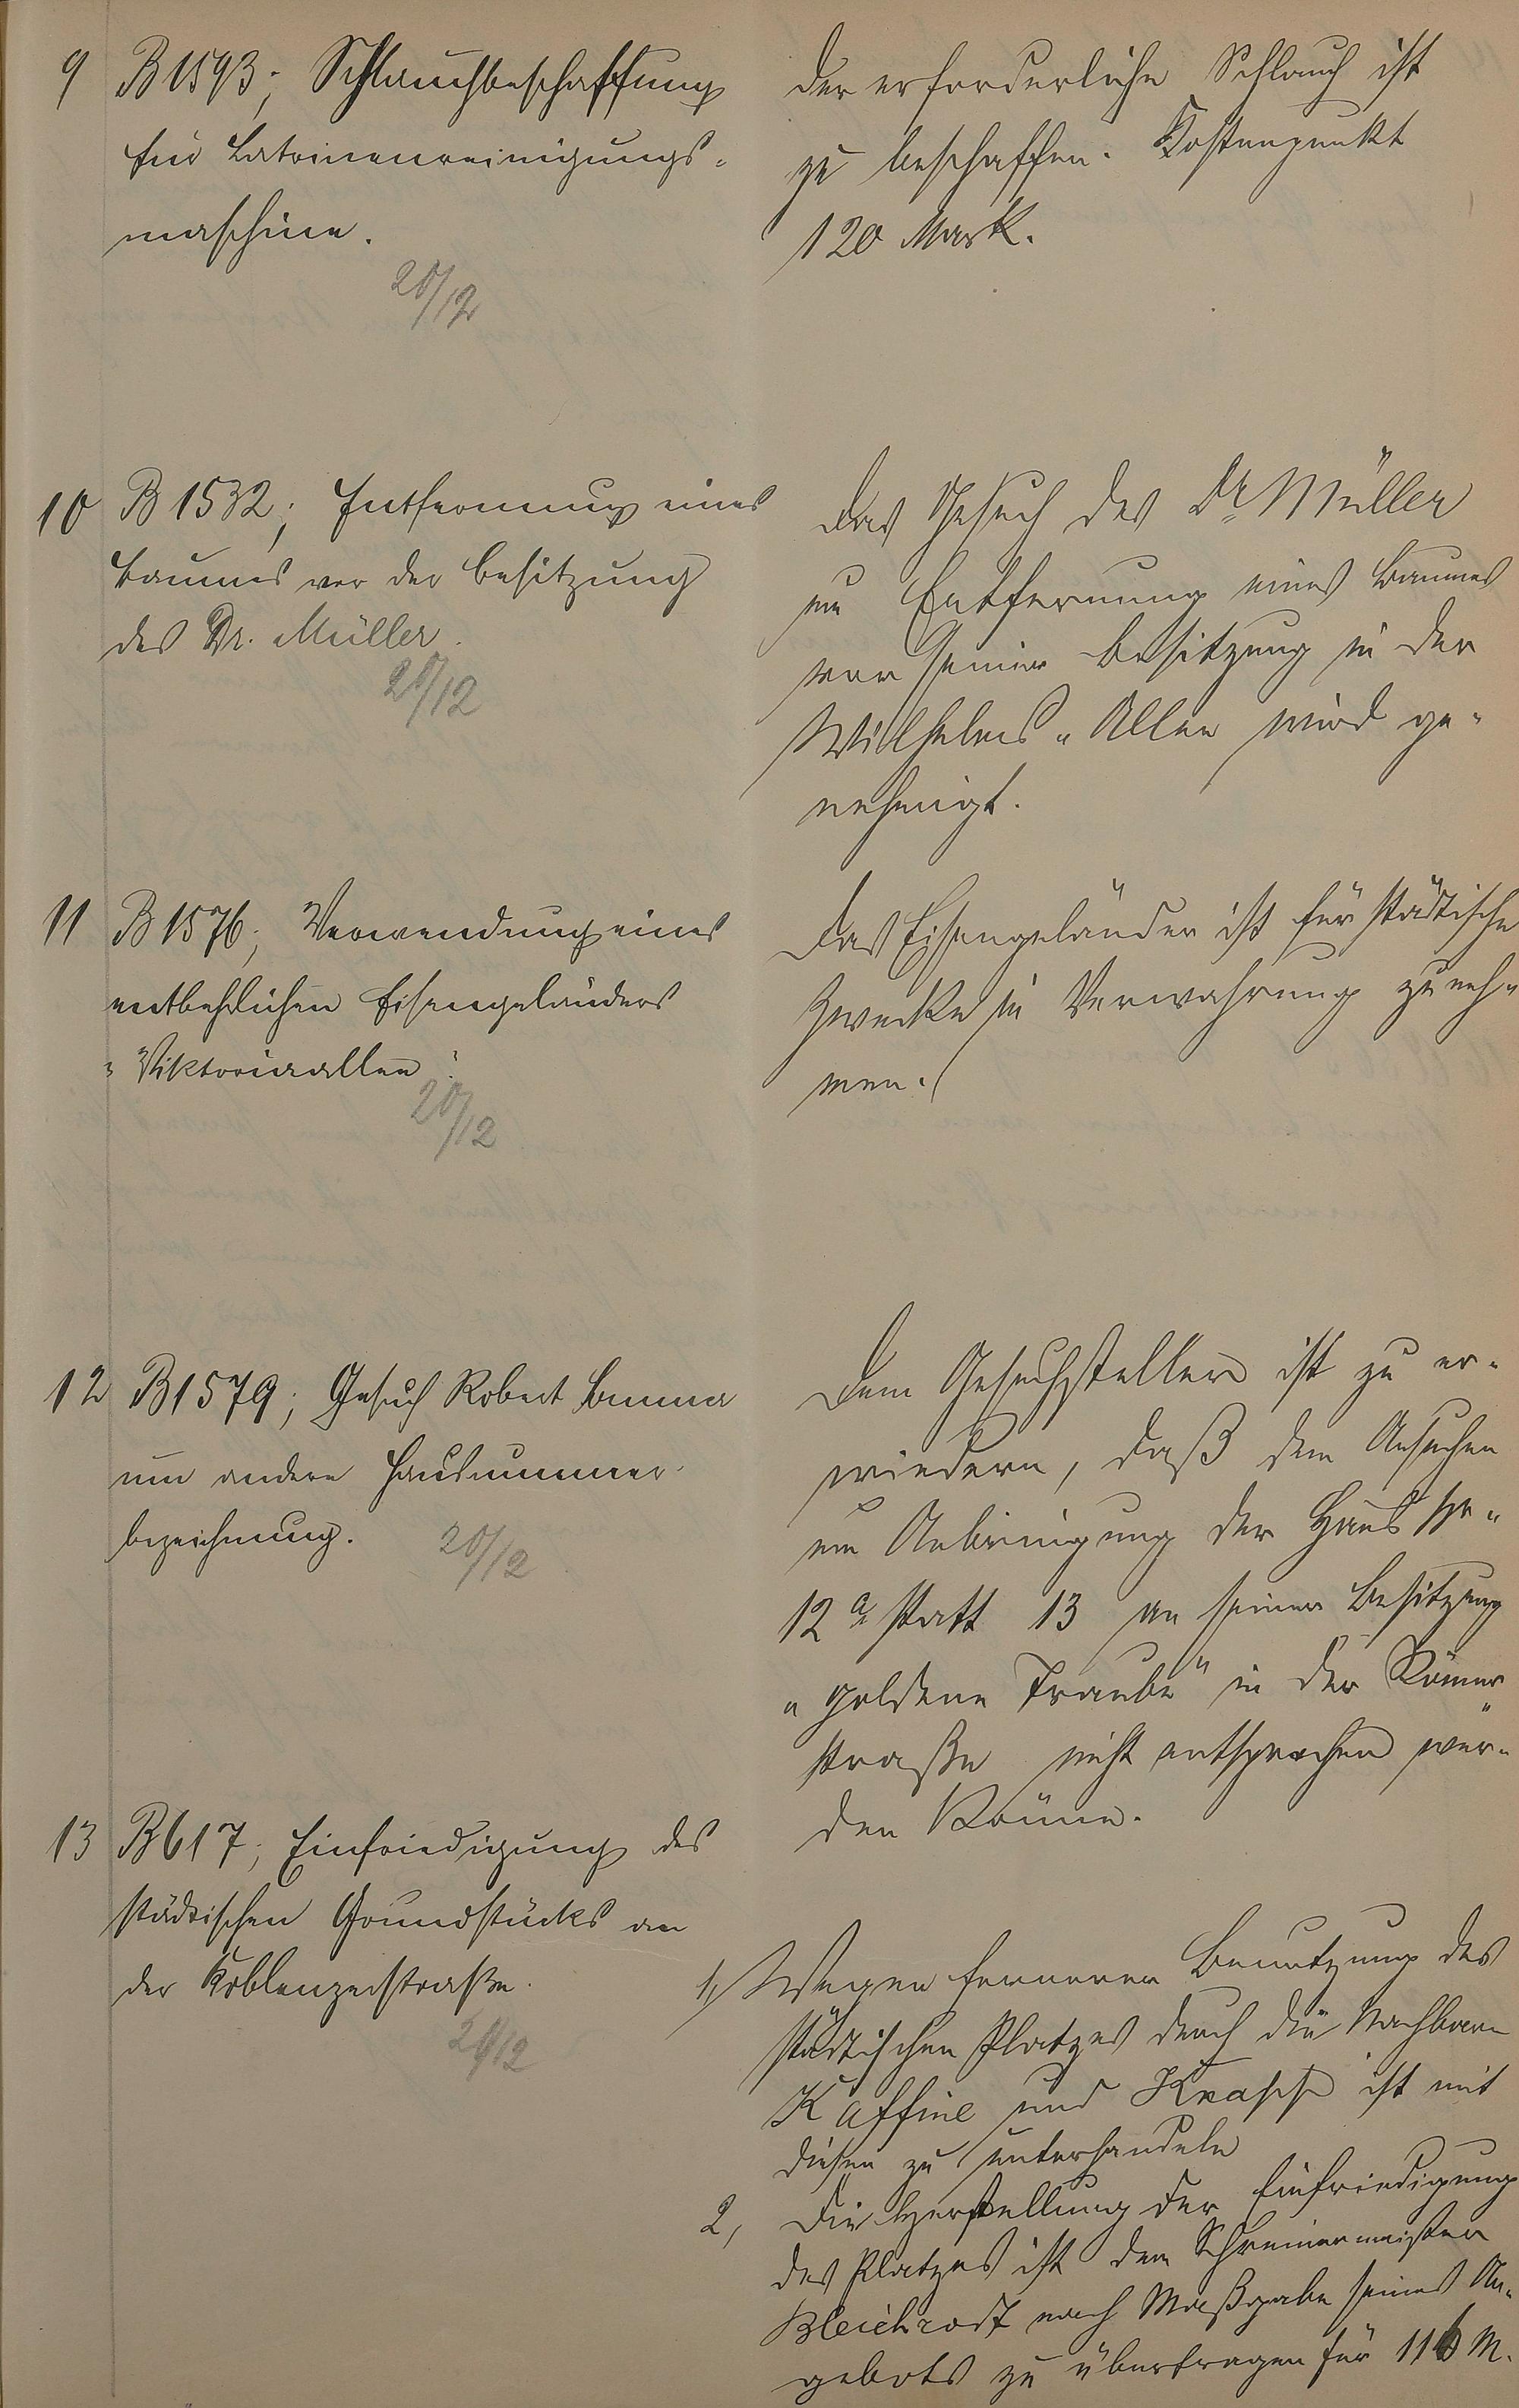 9 B 1593; Schlauchbeschaffung
für Latrinenreinigungs-
maschine.
20/12
Der erforderliche Schlauch ist
zu beschaffen. Kostenpunkt
120 Mark.
10 B 1532; Entfernung eines
Baumes vor der Besitzung
des Dr. Müller.
20/12
Das Gesuch des Dr. Müller
um Entfernung eines Baumes
vor seiner Besitzung in der
Wilhelms-Allee wird ge-
nehmigt.
11 B 1576; Verwendung eines
entbehrlichen Eisengeländers
"Viktoriaallee"
20/12
Das Eisengeländer ist für städtische
Zwecke in Verwahrung zu neh-
men.
12 B 1579; Gesuch Robert
um andere Hausnummer-
bezeichnung.
20/12
Dem Gesuchsteller ist zu er-
wiedern, daß dem Ansuchen
um Anbringung der Haus No
12a statt 13 an seiner Besitzung
"goldene Traube" in der Römer-
straße nicht entsprochen wer-
den könne.
13 B 617; Einfriedigung des
städtischen Grundstücks an
der Koblenzerstraße.
20/12
1, Wegen fernerer Benutzung des
städtischen Platzes durch die Nachbarn
Kaffine und Krapp ist mit
diesen zu unterhandeln
2, Die Herstellung der Einfriedigung
des Platzes ist dem Schreinermeister
Bleichrodt nach Maßgabe seines An-
gebots zu übertragen für 116 M.